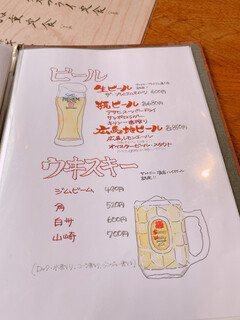 ビール
生ビール
ザ・プレミアムモルツ 600円
瓶ビール 各680円
アサヒスーパードライ
サッポロラガー
キリン一番搾り
広島地ビール 各880円
広島レモンエール
オイスタービール・スタウト
ウヰスキー
ジムビーム 490円
角 520円
白州 600円
山崎 700円